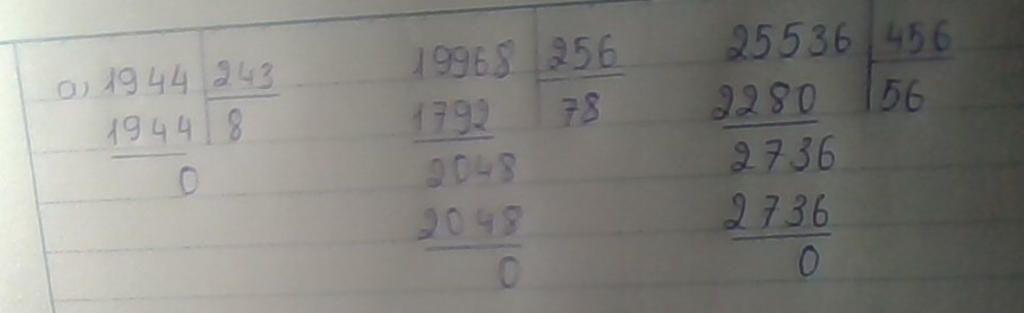 a) 1944 243
1944 8
0
19968 256
1792 78
2048
2048
0
25536 456
2280 56
2736
2736
0